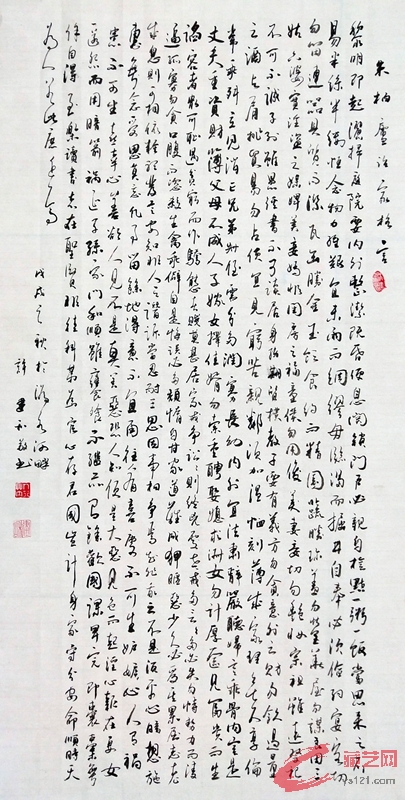 朱柏廬治家格言
黎明即起灑掃庭院要内外整潔既昏便息關鎖門户必親自檢點一粥一飯當思來之不
易半絲半縷恒念物力維艱宜未雨而綢繆毋臨渴而掘井自奉必須儉約宴客切
勿留連器具質而潔瓦缶勝金玉飲食約而精園蔬勝珍羞勿營華屋勿謀良田三
姑六婆實淫盗之媒婢美妾嬌非閨房之福童僕勿用俊美妻妾切勿艷妝宗祖雖遠祭祀
不可不誠子孫雖愚經書不可不讀居身務期質樸教子要有義方勿貪意外之財勿飲過量
之酒與肩挑貿易勿占便宜見窮苦親鄰須加温恤刻薄成家理無久享倫
常乖舛立見消亡兄弟叔侄需分多潤寡長幼内外宜法肅辭嚴聽婦言乖骨肉豈是
丈夫重資財薄父母不成人子嫁女擇佳婿勿索重聘娶媳求淑女勿計厚奩見富貴而生
諂容者最可耻遇貧窮而作驕態者賤莫甚居家戒争訟訟則終凶處世戒多言言多必失勿恃勢力而凌
逼孤寡勿貪口腹而恣殺生禽乖僻自是悔誤必多頹惰自甘家道難成狎昵惡少久必受其累屈志老
成急則可相依輕聽發言安知非人之譖訴當忍耐三思因事相争焉知非我之不是須平心暗想施
惠無念受恩莫忘凡事當留餘地得意不宜再往人有喜慶不可生妒嫉心人有禍
患不可生喜幸心善欲人見不是真善惡恐人知便是大惡見色而起淫心報在妻女
匿怨而用暗箭禍延子孫家門和順雖饔飧不繼亦有餘歡國課早完即囊橐無
餘自得至樂讀書志在聖賢非徒科第為官心存君國豈計身家守分安命順時聽天
為人若此庶乎近焉
戊戌之秋於河畔
許書
藏艺网
ys121.com